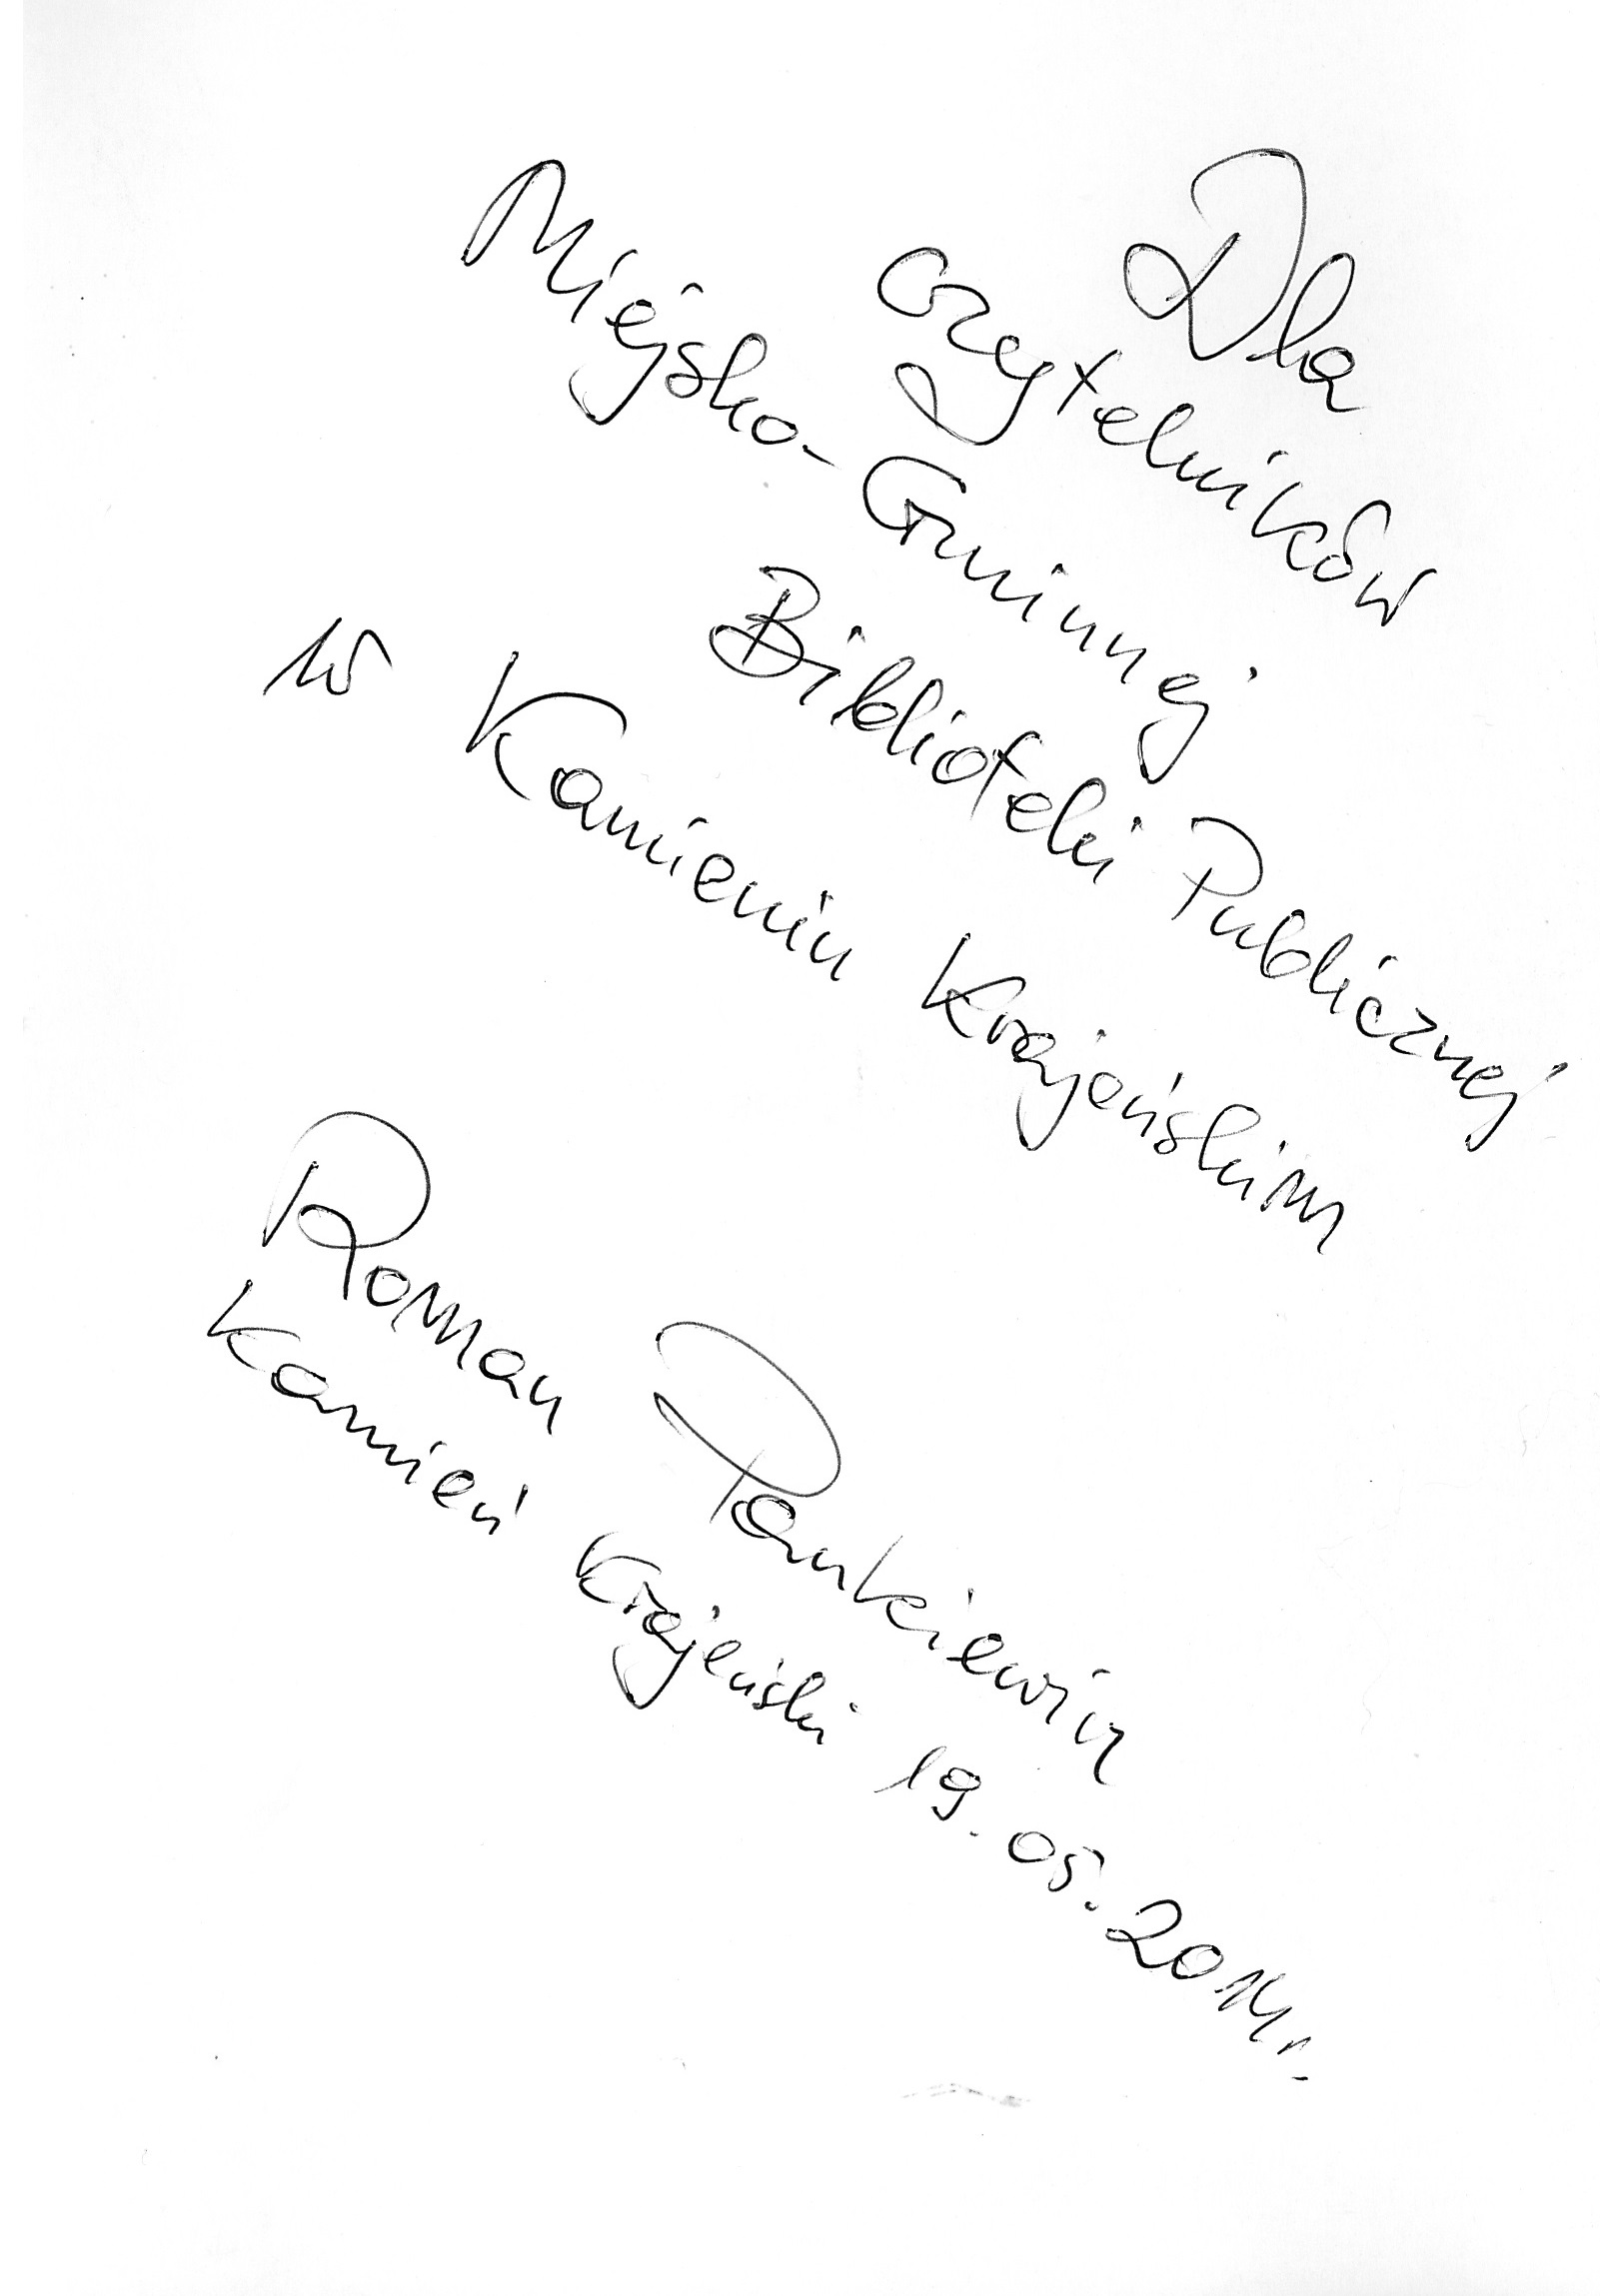 Dla
czytelników
Miejsko-Gminnej
Biblioteki Publicznej
w Kamieniu Krajeńskim
Roman Pankiewicz
Kamień Krajeński 19.05.2014r.